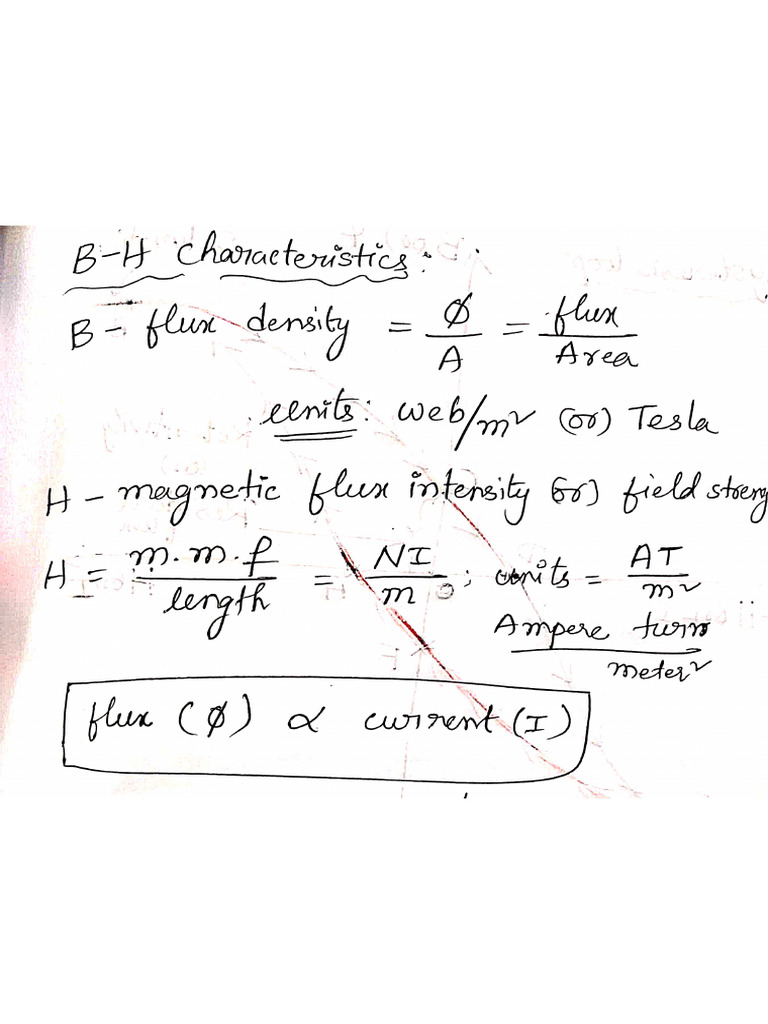 B-H characteristics:
B - flux density = ϕ/A = flux/Area
units: web/m² (or) Tesla
H - magnetic flux intensity (or) field streng
H = m.m.f/length = NI/m ; units = AT/m²
Ampere turn/meter²
flux (ϕ) ∝ current (I)